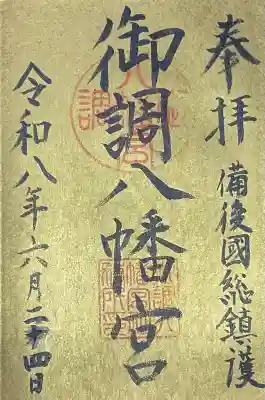 奉拝
備後國総鎮護
御調八幡宮
令和八年六月二十四日